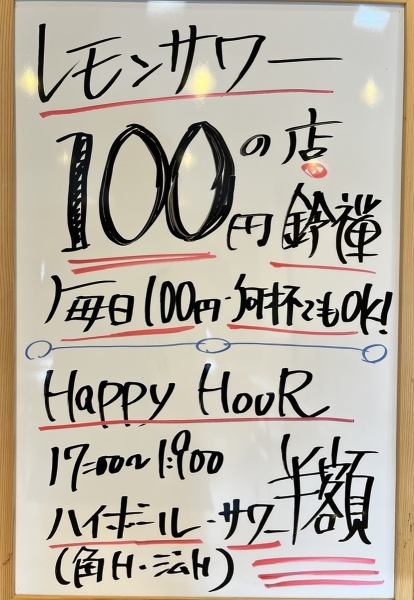 レモンサワー
100円の店
鈴禅
毎日100円・何杯でもOK!
Happy HouR
17:00~1:900
ハイボール・サワー 半額
(角H・